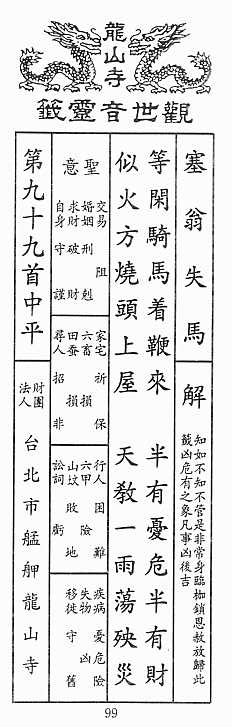 龍山寺
觀世音靈籤
塞翁失馬
解
知如不知不管是非常身臨枷鎖恩赦放歸此
籤凶危有之象凡事凶後吉
等閑騎馬着鞭來　半有憂危半有財
似火方燒頭上屋　天教一雨蕩殃災
聖意
交易　阻
婚姻　刑剋
求財　破財
自身　守謹
家宅　祈保
六畜　損
田蚕　損
尋人　招非
行人　困難
六甲　險
山坟　敗地
訟詞　虧
疾病　憂危險
失物　凶
移徙　守舊
第九十九首中平
財團
法人
台北市艋舺龍山寺
99